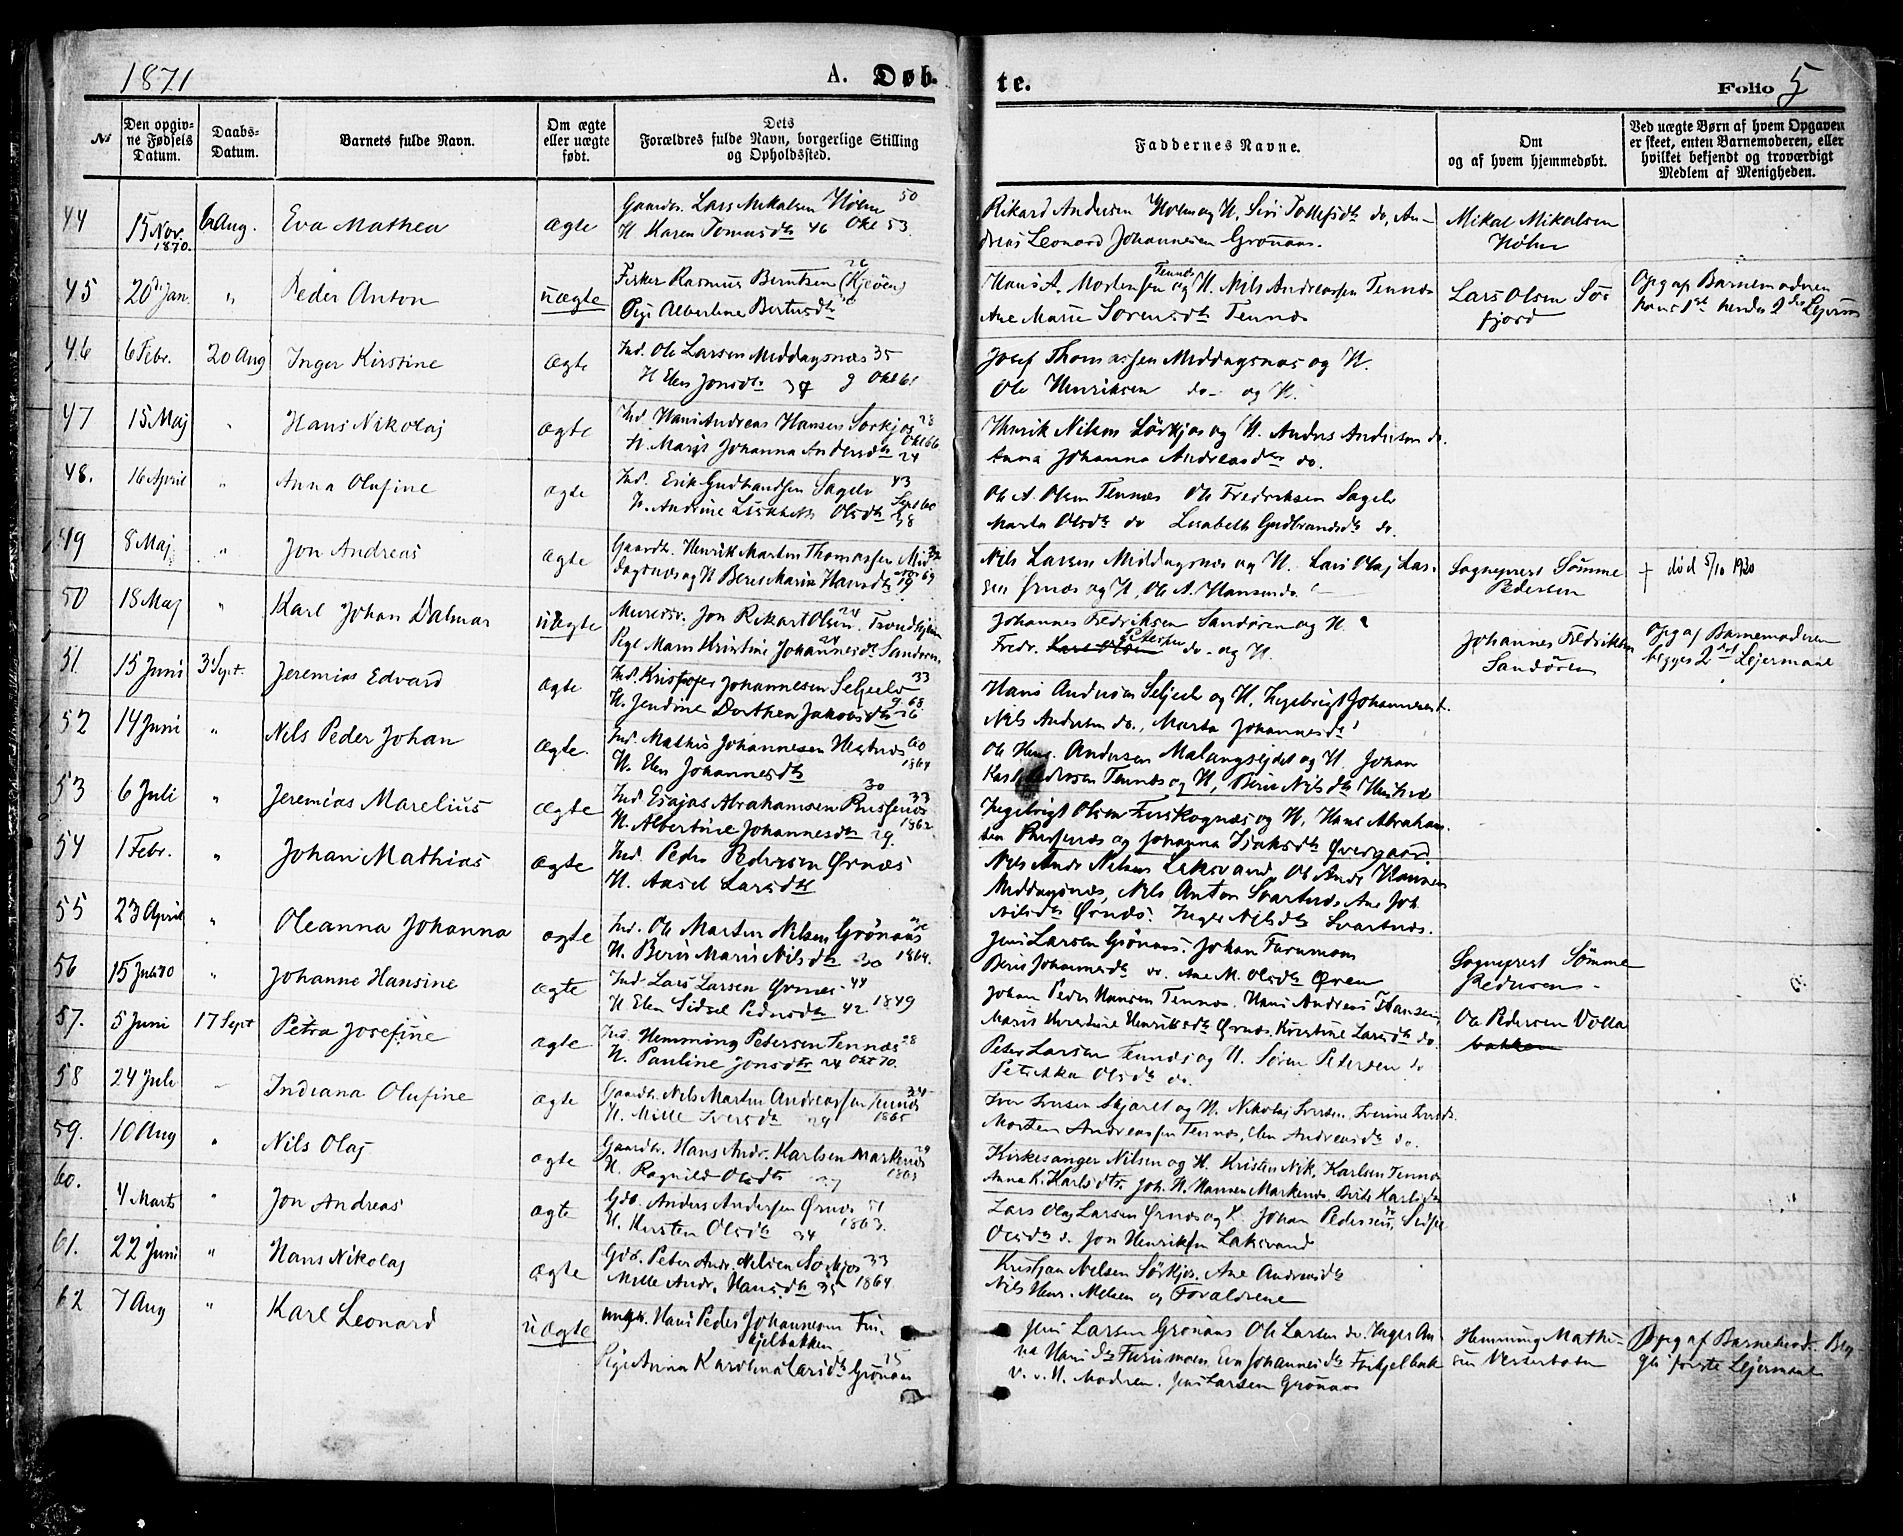 1871
A. Døb-
te.
Folio 5
№
Den opgiv-
ne Fødsels
Datum.
Daabs-
Datum.
Barnets fulde Navn.
Om ægte
eller uægte
født.
Dets
Forældres fulde Navn, borgerlige Stilling
og Opholdssted.
Faddernes Navne.
Om
og af hvem hjemmedøbt.
Ved uægte Børn af hvem Opgaven
er skeet, enten Barnemoderen, eller
hvilket bekjendt og troværdigt
Medlem af Menigheden.
44 15 Nov. 1870. Aug. Eva Mathea ægte Gaardb. Lars Mikalsen Holm 50
H. Karen Tomasdtr 46 Okt 53.
Rikard Andersen Holm og H. Siri Tollefsdtr do, An-
dreas Leonard Johannesen Grønaas.
Mikal Mikalsen
Holm
45 20de Jan. " Peder Anton uægte Fisker Rasmus Berntsen (Kjøen)
Pige Albertine Bertusdtr
Hans A. Mortensen Tennes og H. Nils Andreassen Tennes
Ane Marie Sørensdtr Tennes
Lars Olsen Sør
fjord
Opg af Barnemoderen
hans 1ste hendes 2det Lejerm
46 6 Febr. 20 Aug Inger Kirstine ægte Ind. Ole Larsen Middagsnæs 35
H Elen Jonsdtr 34 g Okt 61
Josef Thomassen Middagsnæs og H.
Ole Henriksen do og H.
47 15 Maj " Hans Nikolaj ægte Ind. Hans Andreas Hansen Sørkjos 28
H. Marit Johanna Andersdtr 24 Okt 66.
Henrik Nilsen Sørkjos og H. Anders Andersen do.
Anna Johanna Andreasdtr do.
48. 16 April " Anna Olufine ægte Ind. Erik Gudbrandsen Sagelv 43
H. Andrine Lisabeth Olsdtr 38
Ole A. Olsen Tennæs Ole Fredriksen Sagelv
Marta Olsdtr do Lisabeth Gudbrandsdtr do.
49 8 Maj " Jon Andreas ægte Gaardb. Henrik Martin Thomassen Mid-
dagsnæs og H Berit Maria Hansdtr
Nils Larsen Middagsnæs og H. Lars Olaj Lar-
sen Ørnæs og H, Ole A. Hansen do.
Sogneprest Sømme
Pedersen
† død 5/10 1930
50 18 Maj " Karl Johan Dalmar uægte Murersv. Jon Rikart Olsen 24 Trondhjem
Pige Maris Kristine Johannesdtr 24 Sandøren
Johannes Fredriksen Sandøren og H.
Fredr. Karl Olsen Petersen do. og H.
Johannes Fredriksen
Sandøren
Opg af Barnemoderen
begges 2det Lejermaal
51. 15 Juni 3 Sept. Jeremias Edvard ægte Ind. Kristofer Johannesen Seljelv 33
H. Jendine Dorthea Jakobsdtr 26 g. 68.
Hans Andersen Seljelv og H, Ingebrigt Johannesen
Nils Andersen do., Marta Johannesdtr
52 14 Juni " Nils Peder Johan ægte. Ind. Mathis Johannesen 40
H. Elen Johannesdtr 30 1864
Ole Hen. Andersen Malangseidet og H. Johan
Karl Pedersen Tennæs og H, Berit Nilsdtr
53 6 Juli " Jeremias Marelius ægte Ind. Esajas Abrahamsen 33
H. Albertine Johannesdtr 29. 1862.
Ingebrigt Olsen Fiskognæs og H, Hans Abraham-
sen og Johanna Isaksdtr Øvergaard.
54 1 Febr. " Johan Mathias ægte Ind. Peder Pedersen Ørnæs
H. Aasel Larsdtr
Nils Andr Nilsen Laksvand, Ole Andr Hansen
Middagsnæs, Nils Anton Svartnæs Ane Joh.
Nilsdtr Ørnæs. Inger Nilsdtr Svartnæs.
55 23 April " Oleanna Johanna ægte Ind. Ole Martin Nilsen Grønaas
H. Berit Maris Nilsdtr 30 1864.
Jens Larsen Grønaas. Johan Furumoen
Berit Johannesdtr do. Ane M. Olsdtr Øren
56 15 Juli 70 " Johanne Hansine ægte Ind. Lars Larsen Ørnæs 44
H Elen Sidsel Pedersdtr 42 1849
Johan Peder Hansen Tennæs. Hans Andreas Hansen,
Maris Kristine Henriksdtr Ørnæs. Kristine Larsdtr do.
Sogneprest Sømme
Pedersen
57. 5 Juni 17 Sept Petra Josefine ægte Ind. Hemming Petersen Tennæs 28
H. Pauline Jonsdtr 24 Okt 70.
Peter Larsen Tennæs og H. Søren Petersen do
Petrikka Olsdtr do.
Ole Pedersen Volla
bakken
58 24 Juli " Indiana Olufine ægte Gaardb. Nils Martin Andreassen Tennæs 34
H. Mille Iversdtr 29 1865
Iver Iversen Skjæret og H. Nikolaj Iversen. Iverine Iversdtr
Morten Andreassen Tennæs, Elen Andreasdtr do.
59. 10 Aug " Nils Olaj ægte Gaardb. Hans Andr. Karlsen Markenæs 29
H. Ragnild Olsdtr 27 1865
Kirkesanger Nilsen og H. Kristen Nik. Karlsen Tennæs
Anne K. Karlsdtr. Joh. H. Hansen Markenæs. Berit Karlsdtr
60. 4 Marts " Jon Andreas ægte Gdb. Anders Andersen Ørnæs 51
H. Kirsten Olsdtr 34 1863.
Lars Olaj Larsen Ørnæs og H. Johan Pedersen do, Sidsel
Olsdtr do. Jon Henriksen Laksvand
61. 22 Juni " Hans Nikolaj ægte Gdb. Peter Andr. Nilsen Sørkjos 33
Mille Andr. Hansdtr 35 1864
Kristjan Nilsen Sørkjos. Ane Andreasdtr
Nils Henr. Nilsen og Forældrene
62 7 Aug " Karl Leonard uægte Ungk. Hans Peder Johannesen Fin-
kjelbakken
Pige Anna Karolina Larsdtr Grønaas 25
Jens Larsen Grønaas Ole Larsen do. Inger An-
na Hansdtr Furumoen. Eva Johannesdtr Finkjelbak
V. v. H. Modren. Jens Larsen Grønaas
Hemming Mathi-
sen Vesterbotn
Opg af Barnemod. Beg-
ges første Lejermaal